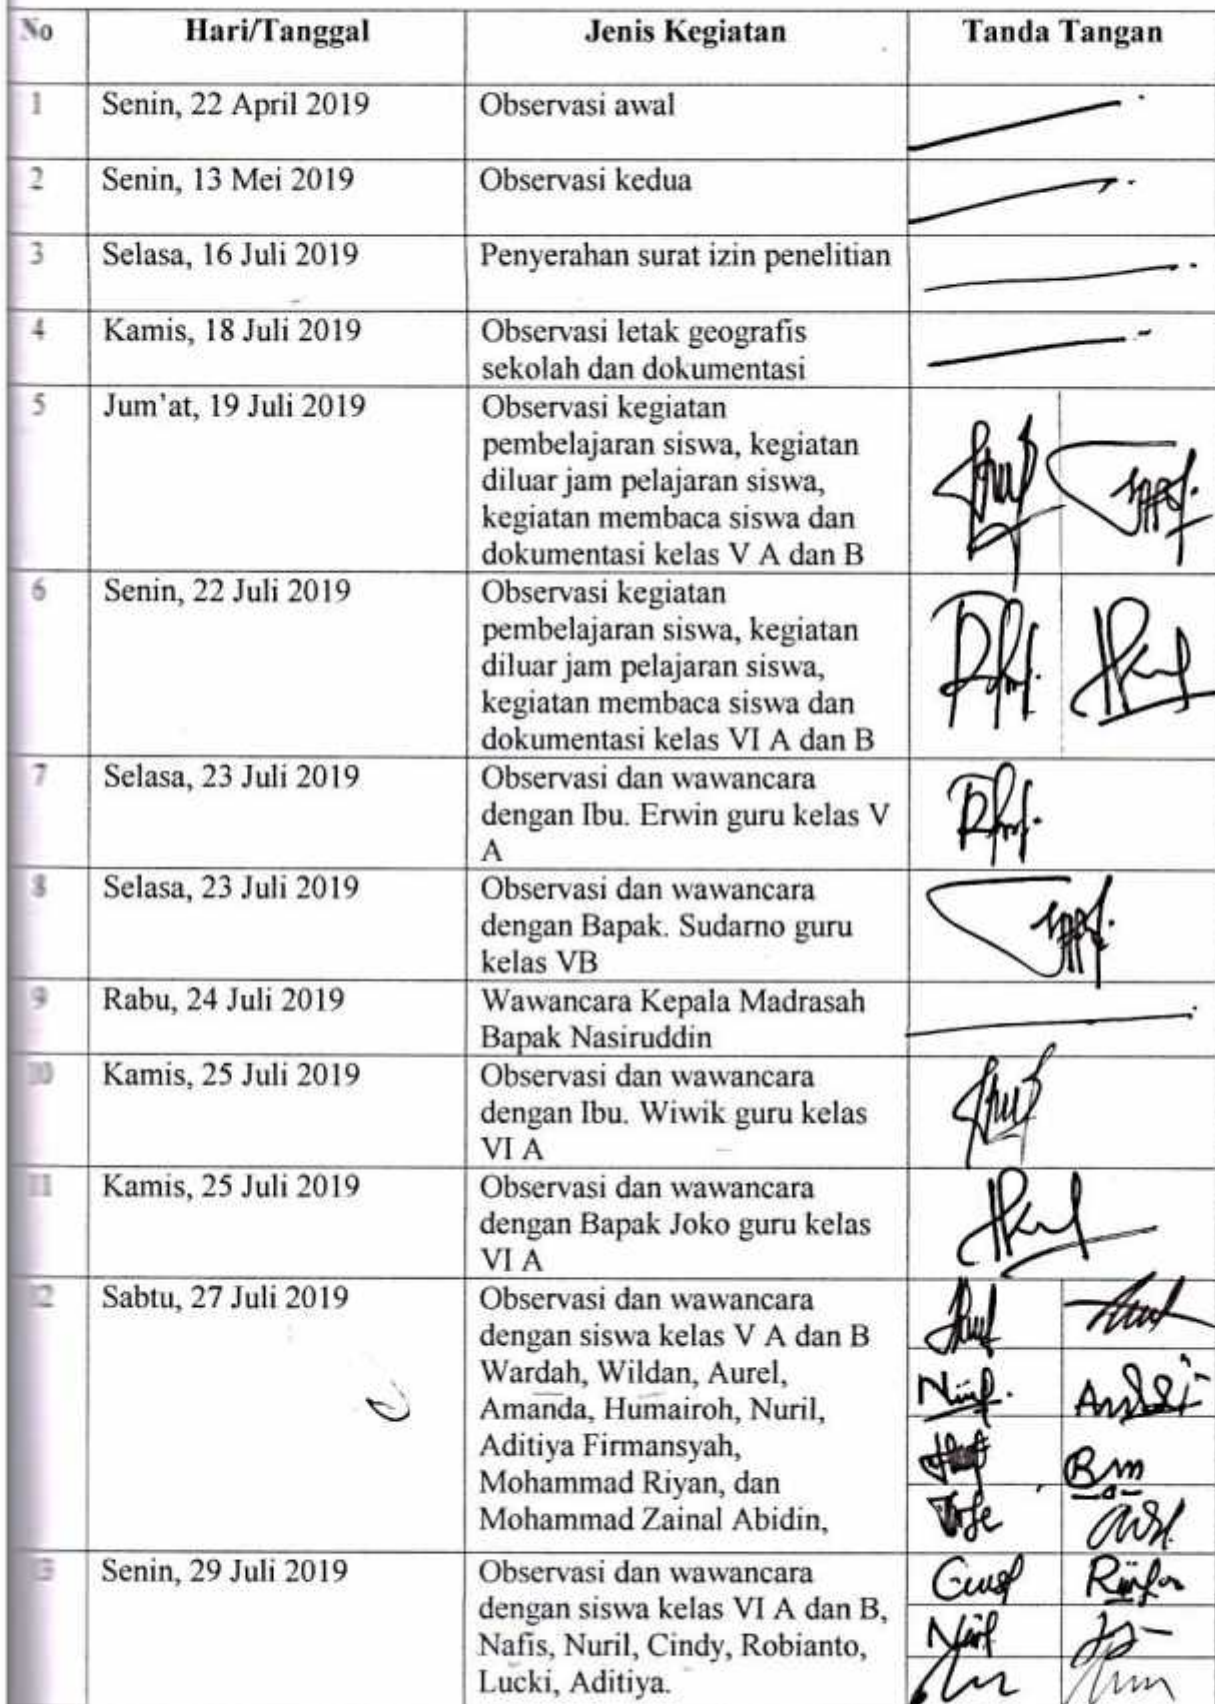 No Hari/Tanggal Jenis Kegiatan Tanda Tangan
1 Senin, 22 April 2019 Observasi awal
2 Senin, 13 Mei 2019 Observasi kedua
3 Selasa, 16 Juli 2019 Penyerahan surat izin penelitian
4 Kamis, 18 Juli 2019 Observasi letak geografis
sekolah dan dokumentasi
5 Jum'at, 19 Juli 2019 Observasi kegiatan
pembelajaran siswa, kegiatan
diluar jam pelajaran siswa,
kegiatan membaca siswa dan
dokumentasi kelas V A dan B
6 Senin, 22 Juli 2019 Observasi kegiatan
pembelajaran siswa, kegiatan
diluar jam pelajaran siswa,
kegiatan membaca siswa dan
dokumentasi kelas VI A dan B
7 Selasa, 23 Juli 2019 Observasi dan wawancara
dengan Ibu. Erwin guru kelas V
A
8 Selasa, 23 Juli 2019 Observasi dan wawancara
dengan Bapak. Sudarno guru
kelas VB
9 Rabu, 24 Juli 2019 Wawancara Kepala Madrasah
Bapak Nasiruddin
10 Kamis, 25 Juli 2019 Observasi dan wawancara
dengan Ibu. Wiwik guru kelas
VI A
11 Kamis, 25 Juli 2019 Observasi dan wawancara
dengan Bapak Joko guru kelas
VI A
12 Sabtu, 27 Juli 2019 Observasi dan wawancara
dengan siswa kelas V A dan B
Wardah, Wildan, Aurel,
Amanda, Humairoh, Nuril,
Aditiya Firmansyah,
Mohammad Riyan, dan
Mohammad Zainal Abidin,
13 Senin, 29 Juli 2019 Observasi dan wawancara
dengan siswa kelas VI A dan B,
Nafis, Nuril, Cindy, Robianto,
Lucki, Aditiya.